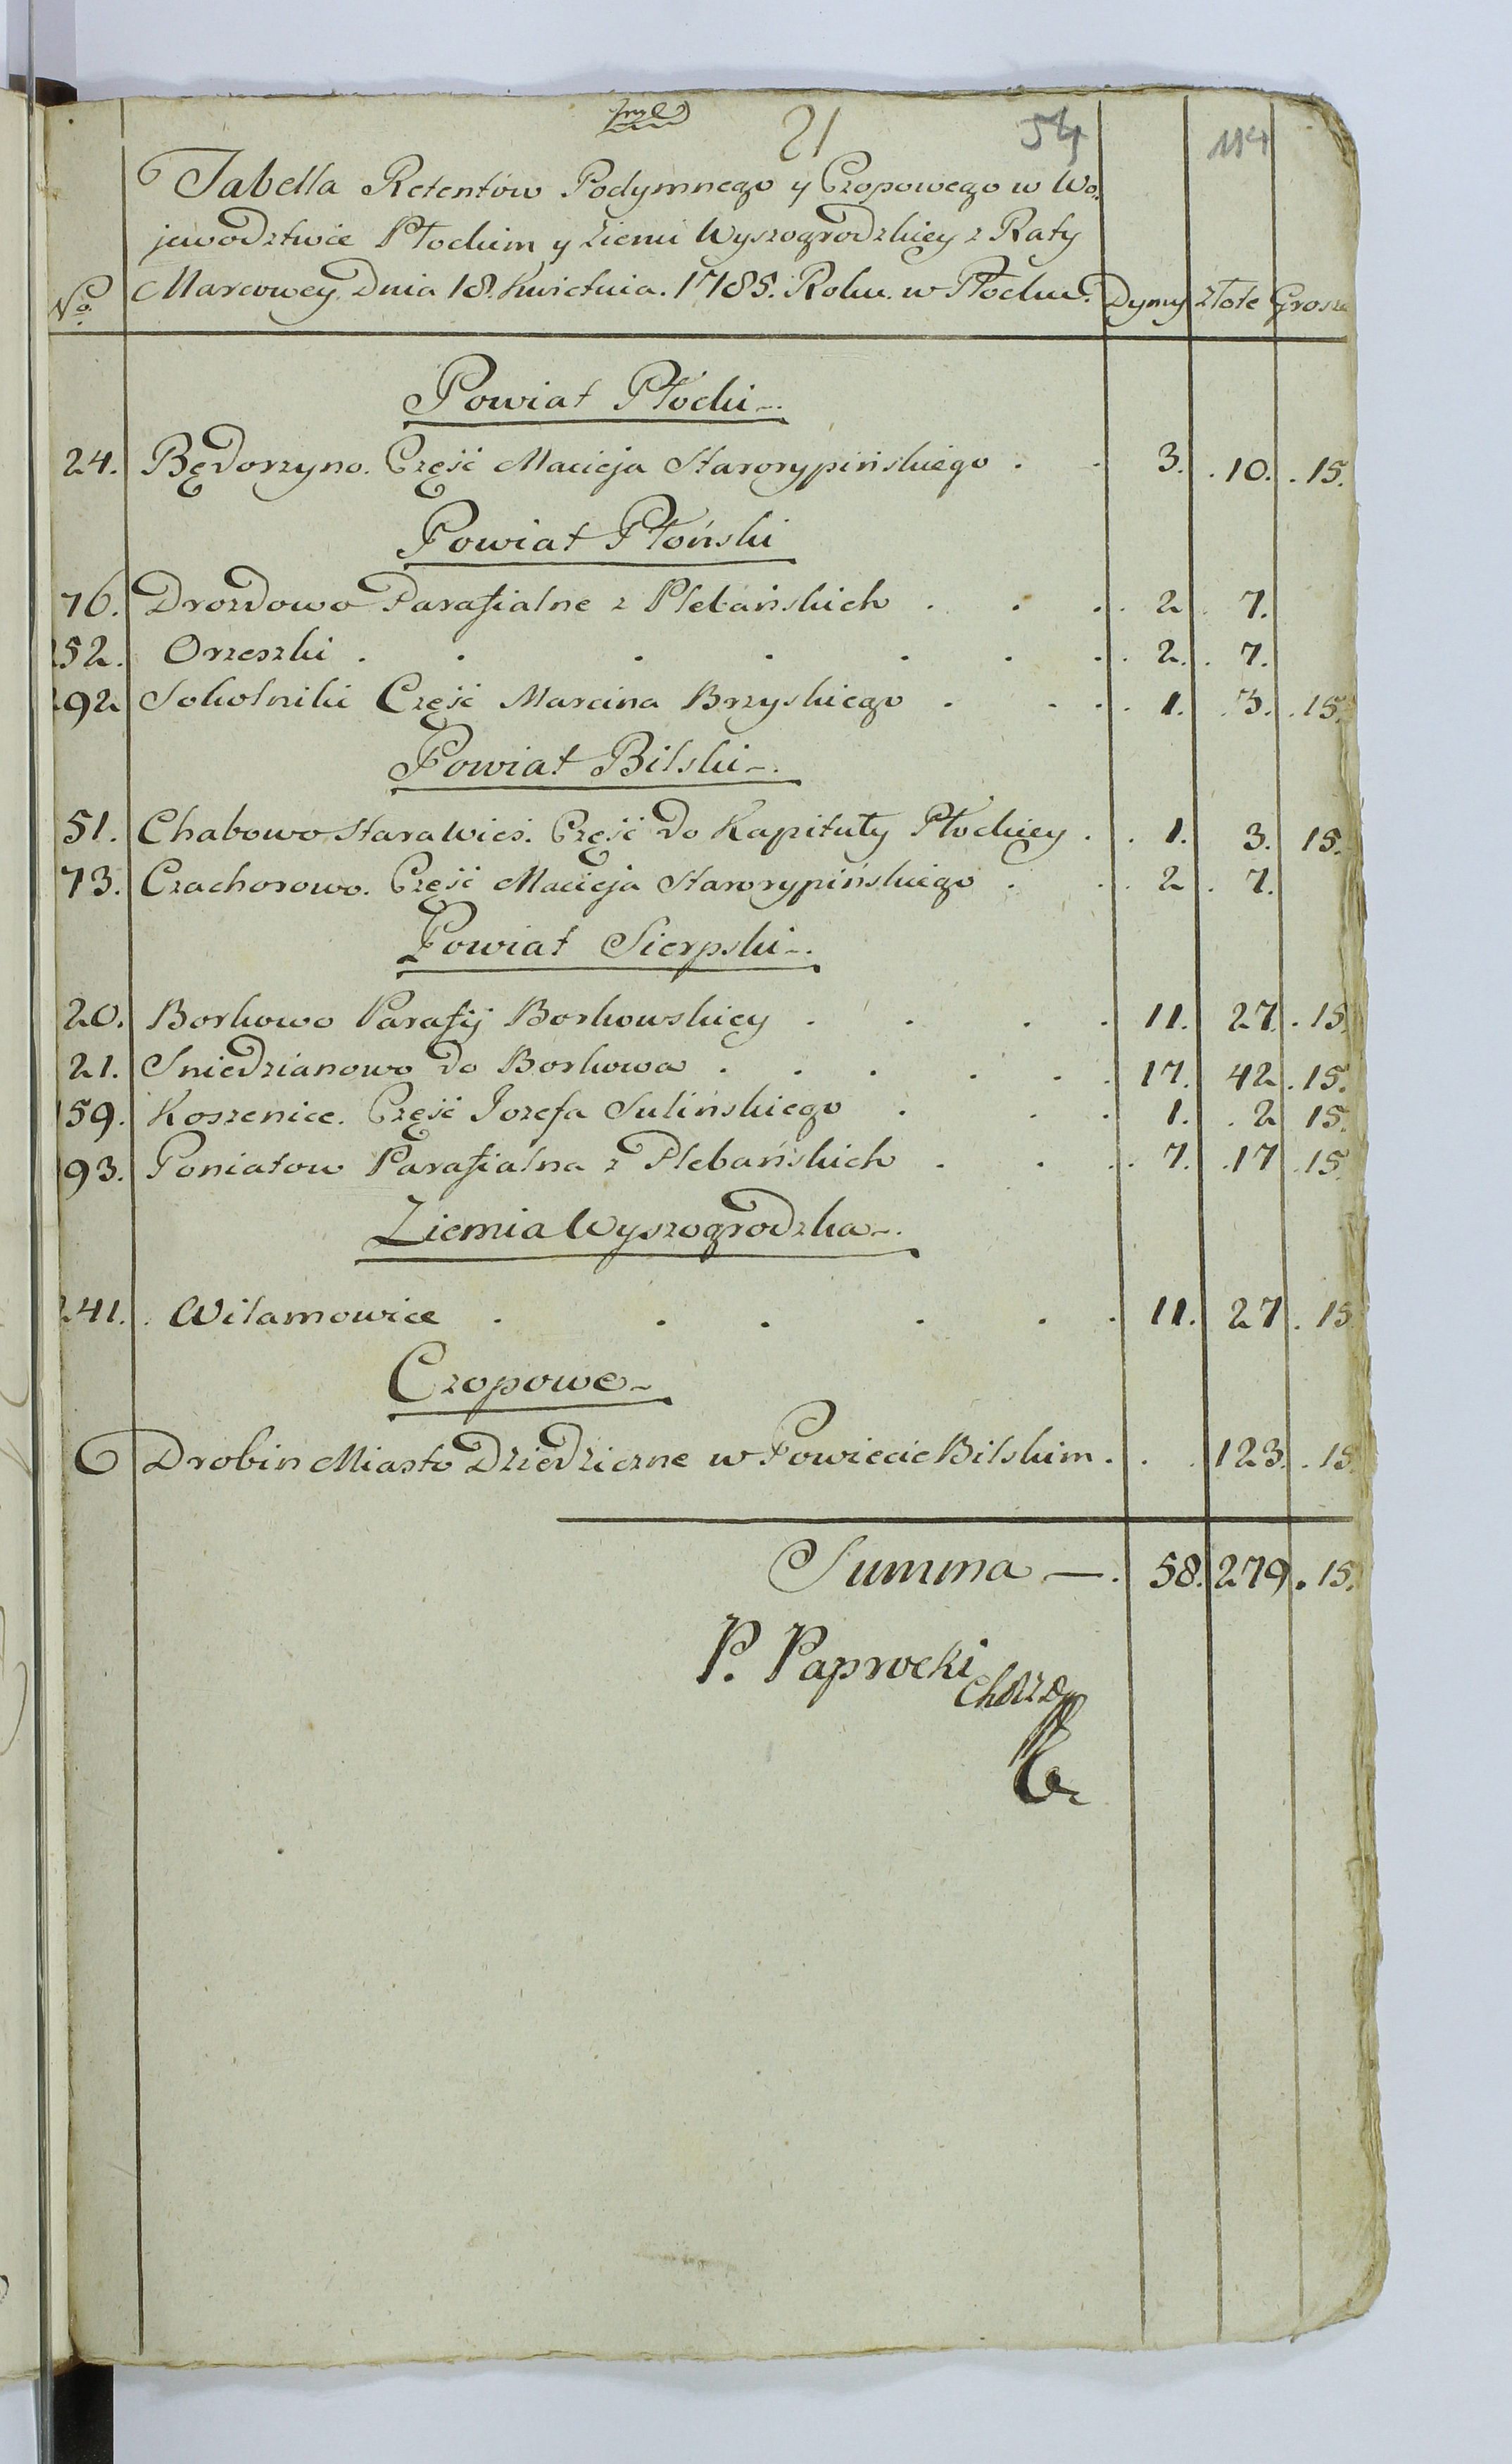 21 54 114
Tabella Retentów Podymnego y Czopowego w Wo-
jewodztwie Płockim y Ziemi Wyszogrodzkiey z Raty
No. Marcowey Dnia 18. Kwietnia. 1785. Roku. w Płocku. Dymy Złote Grosze
Powiat Płocki
24. Będorzyno. Część Macieja Starorypińskiego . . 3. . 10. . 15.
Powiat Płoński
76. Drozdowo Parafialne z Plebańskich . . . . 2 . 7.
252. Orzeszki . . . . . . . . 2. . 7.
292 Sokolniki Część Marcina Brzyskiego . . . . 1. . 3. . 15.
Powiat Bilski
51. Chabowo Stara Wieś. Część do Kapituły Płockiey . . 1. 3. 15.
73. Czachorowo. Część Macieja Starorypińskiego . . . 2 . 7.
Powiat Sierpski
20. Borkowo Parafij Borkowskiey . . . . 11. 27. . 15.
21. Sniedzianowo do Borkowa . . . . . . 17. 42 . 15.
159. Koszenice. Część Jozefa Sulińskiego . . . 1. . 2 15.
193. Poniatow Parafialna z Plebańskich . . . . 7. . 17 . 15
Ziemia Wyszogrodzka
241. . Wilamowice . . . . . . 11. 27 . 15
Czopowe
Drobin Miasto Dziedziczne w Powiecie Bilskim . . . 123. . 15.
Summa —. 58. 279. 15.
P. Paprocki
Chorzy